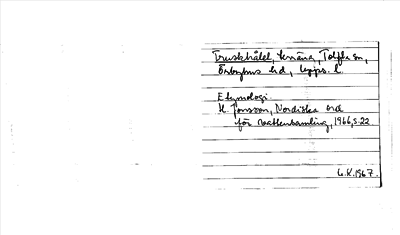 Truskhålet, terräng, Tolfta sn,
Örbyhus hd, Upps. l.
Etymologi:
H. Jonsson, Nordiska ord
för vattensamling, 1966, s. 22
1967.